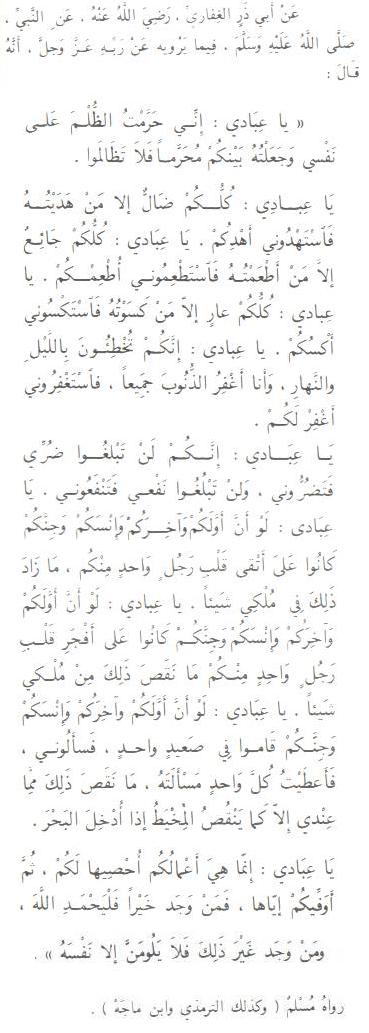 عَنْ أَبي ذَرٍ الغِفَارِيِ ، رَضِيَ اللَّهُ عَنْهُ ، عَنِ النَّبِيِّ ،
صَلَّى اللَّهُ عَلَيْهِ وَسَلَّمَ ، فِيما يَرْوِيهِ عَنْ رَبِّهِ عَزَّ وَجَلَّ ، أَنَّهُ
قَالَ :
« يا عِبَادي : إِنَّي حَرَّمْتُ الظُّلْمَ عَلَى
نَفْسي وَجَعَلْتُهُ بَيْنَكُمْ مُحَرَّماً فَلاَ تَظَالَموا .
يَا عِبادِي : كُلُّكُمْ ضَالٌّ إلا مَنْ هَدَيْتُهُ
فَٱسْتَهْدُوني أَهْدِكُمْ . يَا عِبَادي : كُلُّكُمْ جَائِعٌ
إلاَّ مَنْ أَطْعَمْتُهُ فَٱسْتَطْعِمُوني أُطْعِمْكُمْ . يا
عِبادي : كُلُّكُمْ عارٍ إلاّ مَنْ كَسَوْتُهُ فَٱسْتَكْسُوني
أَكْسُكُمْ . يا عِبادي : إِنَّكُمْ تُخْطِئُونَ بِاللَّيْلِ
والنَّهارِ ، وَأنا أَغْفِرُ الذُّنُوبَ جَمِيعاً ، فاسْتَغْفِرُوني
أَغْفِرْ لَكُمْ .
يَا عِبَادي : إِنَّكُمْ لَنْ تَبْلُغُوا ضُرِّي
فَتَضُرُّوني ، وَلَنْ تَبْلُغُوا نَفْعي فَتَنْفَعُوني . يَا
عِبَادي : لَوْ أنَّ أَوَّلَكُمْ وَآخِرَكُمْ وَإِنْسَكُمْ وَجِنَّكُمْ
كَانُوا عَلىَ أَتْقى قَلْبِ رَجُلٍ وَاحدٍ مِنْكُم ، مَا زَادَ
ذَلِكَ فِي مُلْكِي شَيئاً . يا عِبادي : لَوْ أنَّ أَوَّلَكُمْ
وَآخِرَكُمْ وَإِنْسَكُمْ وَجِنَّكُمْ كَانُوا عَلى أَفْجَرِ قَلْبِ
رَجُلٍ وَاحِدٍ مِنْكُمْ مَا نَقَصَ ذَلِكَ مِنْ مُلْكي
شَيئاً . يا عِبَادي : لَوْ أنَّ أَوَّلَكُمْ وآخِرَكُمْ وَإِنْسَكُمْ
وَجِنَّكُمْ قَاموا فِي صَعيدٍ واحدٍ ، فَسأَلُوني ،
فَأَعطَيْتُ كُلَّ وَاحدٍ مَسْأَلَتَهُ ، مَا نَقَصَ ذَلِكَ مِمَّا
عِنْدي إلاّ كَما يَنْقُصُ الْمِخْيَطُ إذا أُدْخِلَ البَحْرَ .
يَا عِبَادي : إنمَّا هِيَ أَعْمالُكُم أُحْصِيها لَكُمْ ، ثُمَّ
أُوَفِّيكُمْ إيّاها ، فَمَنْ وَجَد خَيْراً فَلْيَحْمَدِ اللَّهَ ،
ومَنْ وَجَد غَيْرَ ذَلِكَ فَلاَ يَلُومَنَّ إلا نَفْسَهُ » .
رواهُ مُسْلمٌ ( وكذلك الترمذي وابن ماجَهْ ) .